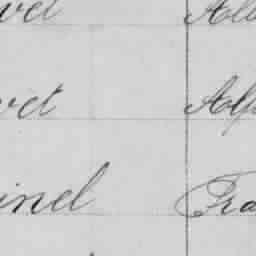 vet Alb
vet Alf
inel Fra